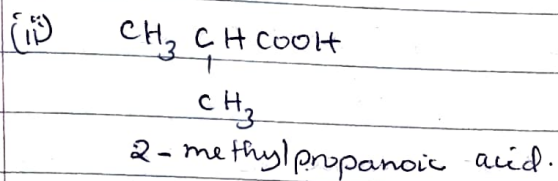 (ii) CH3 CH COOH
CH3
2-methylpropanoic acid.